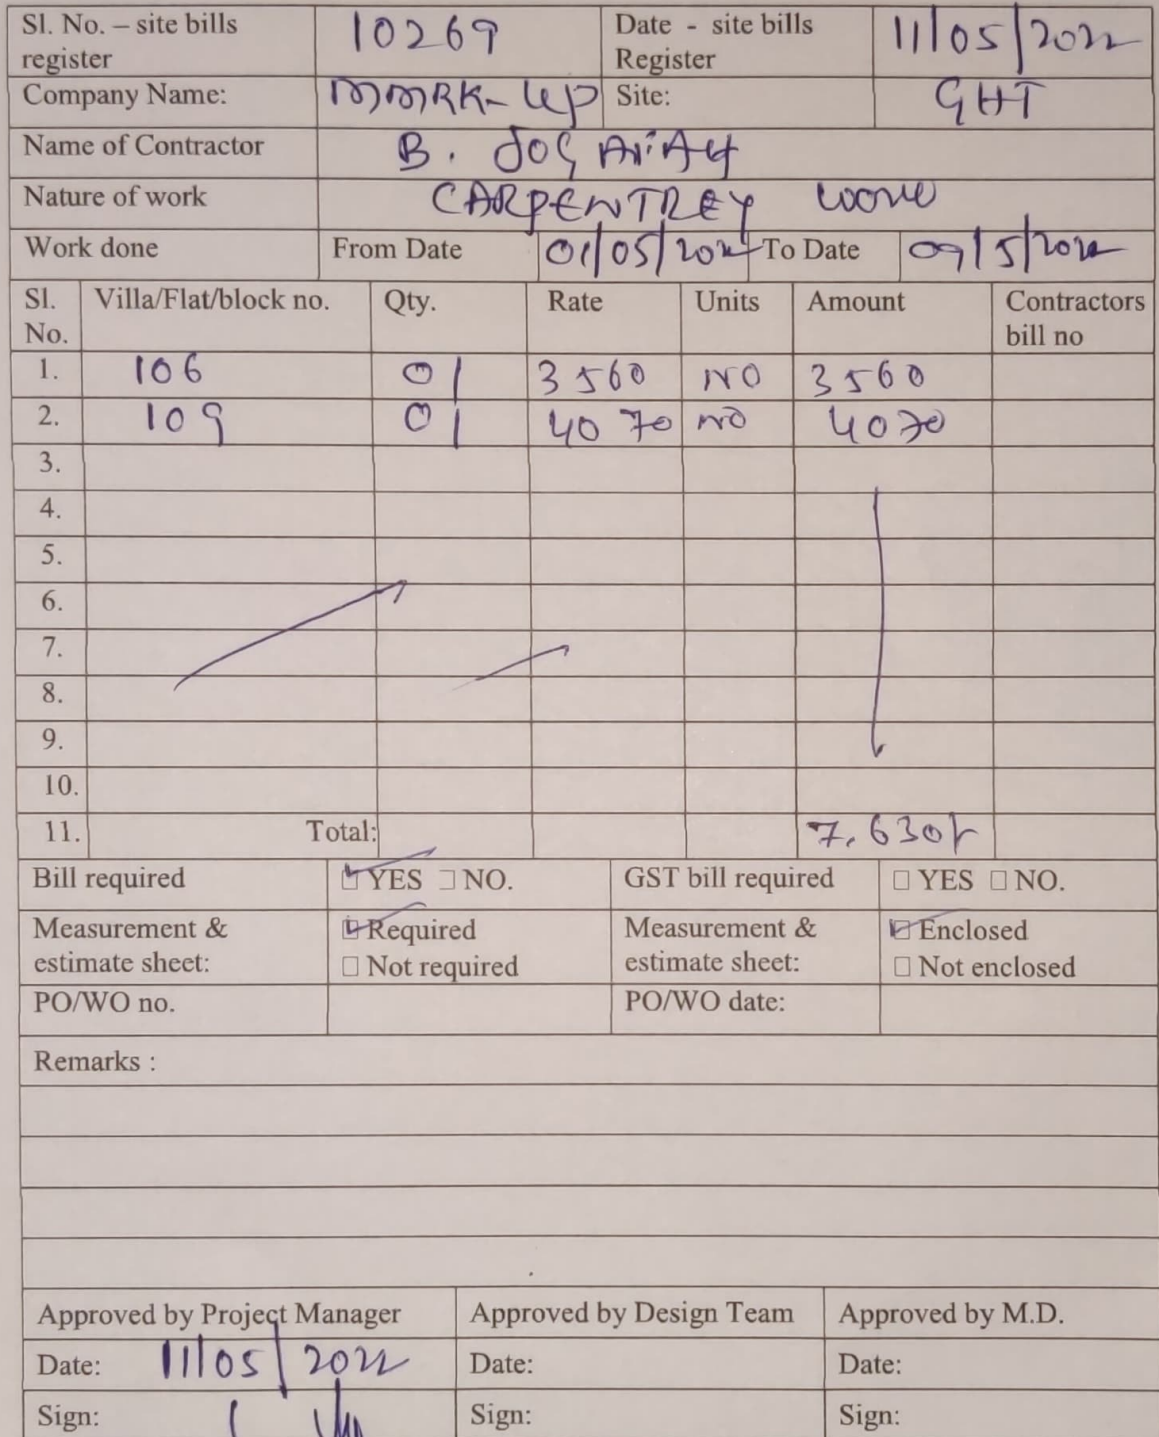 Sl. No. – site bills register 10269 Date - site bills Register 11/05/2022
Company Name: MMRK-UP Site: GHT
Name of Contractor B.
Nature of work CARPENTREY work
Work done From Date 01/05/2022 To Date 09/5/2022
Sl. No. Villa/Flat/block no. Qty. Rate Units Amount Contractors bill no
1. 106 01 3560 NO 3560
2. 109 01 4070 NO 4070
3.
4.
5.
6.
7.
8.
9.
10.
11. Total: 7,630/-
Bill required ☑ YES ☐ NO. GST bill required ☐ YES ☐ NO.
Measurement & estimate sheet: ☑ Required Measurement & estimate sheet: ☑ Enclosed
☐ Not required ☐ Not enclosed
PO/WO no. PO/WO date:
Remarks :
Approved by Project Manager Approved by Design Team Approved by M.D.
Date: 11/05/2022 Date: Date:
Sign: Sign: Sign: